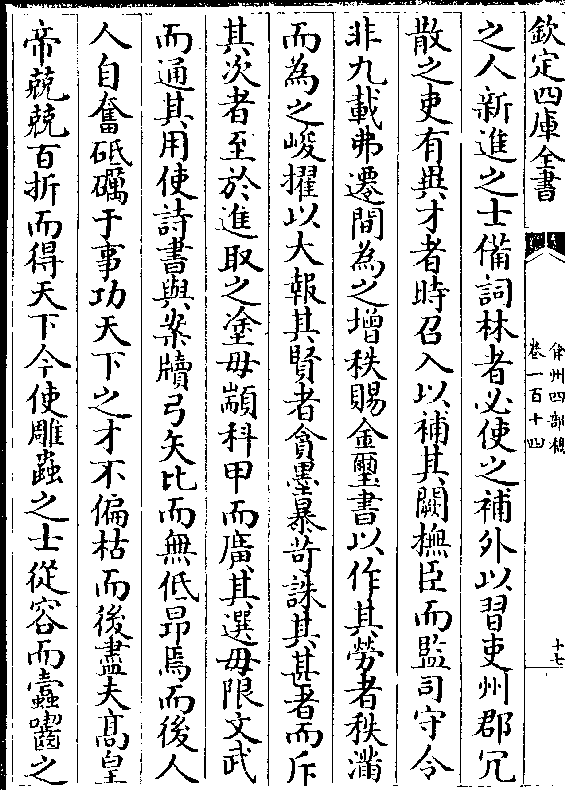 欽定四庫全書
弇州四部稿
卷一百十四
十七
之人新進之士備詞林者必使之補外以習吏州郡冗
散之吏有異才者時召入以補其闕撫臣而監司守令
非九載弗遷間為之增秩賜金璽書以作其勞者秩滿
而為之峻擢以大報其賢者貪墨暴苛誅其甚者而斥
其次者至於進取之塗毋顓科甲而廣其選毋限文武
而通其用使詩書與案牘弓矢比而無低昂焉而後人
人自奮砥礪于事功天下之才不偏枯而後盡夫髙皇
帝兢兢百折而得天下今使雕蟲之士從容而蠧嚙之